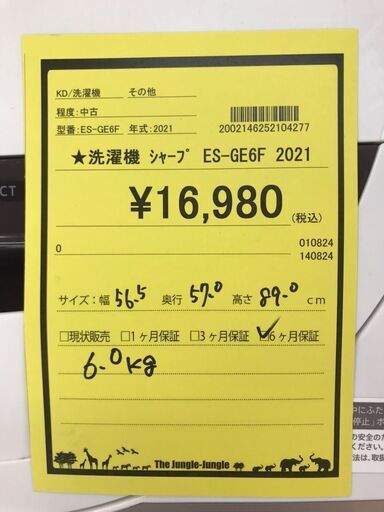 KD/洗濯機 その他
程度:中古
型番:ES-GE6F 年式:2021
2002146252104277
★洗濯機 ｼｬｰﾌﾟ ES-GE6F 2021
¥16,980(税込)
0
010824
140824
サイズ:幅 56.5 奥行 57.0 高さ 89.0 cm
□現状販売 □1ヶ月保証 □3ヶ月保証 ☑6ヶ月保証
6.0kg
The Jungle-Jungle
CT
中にふた
停止」ボ
の安全のた
ください。
法は、取扱